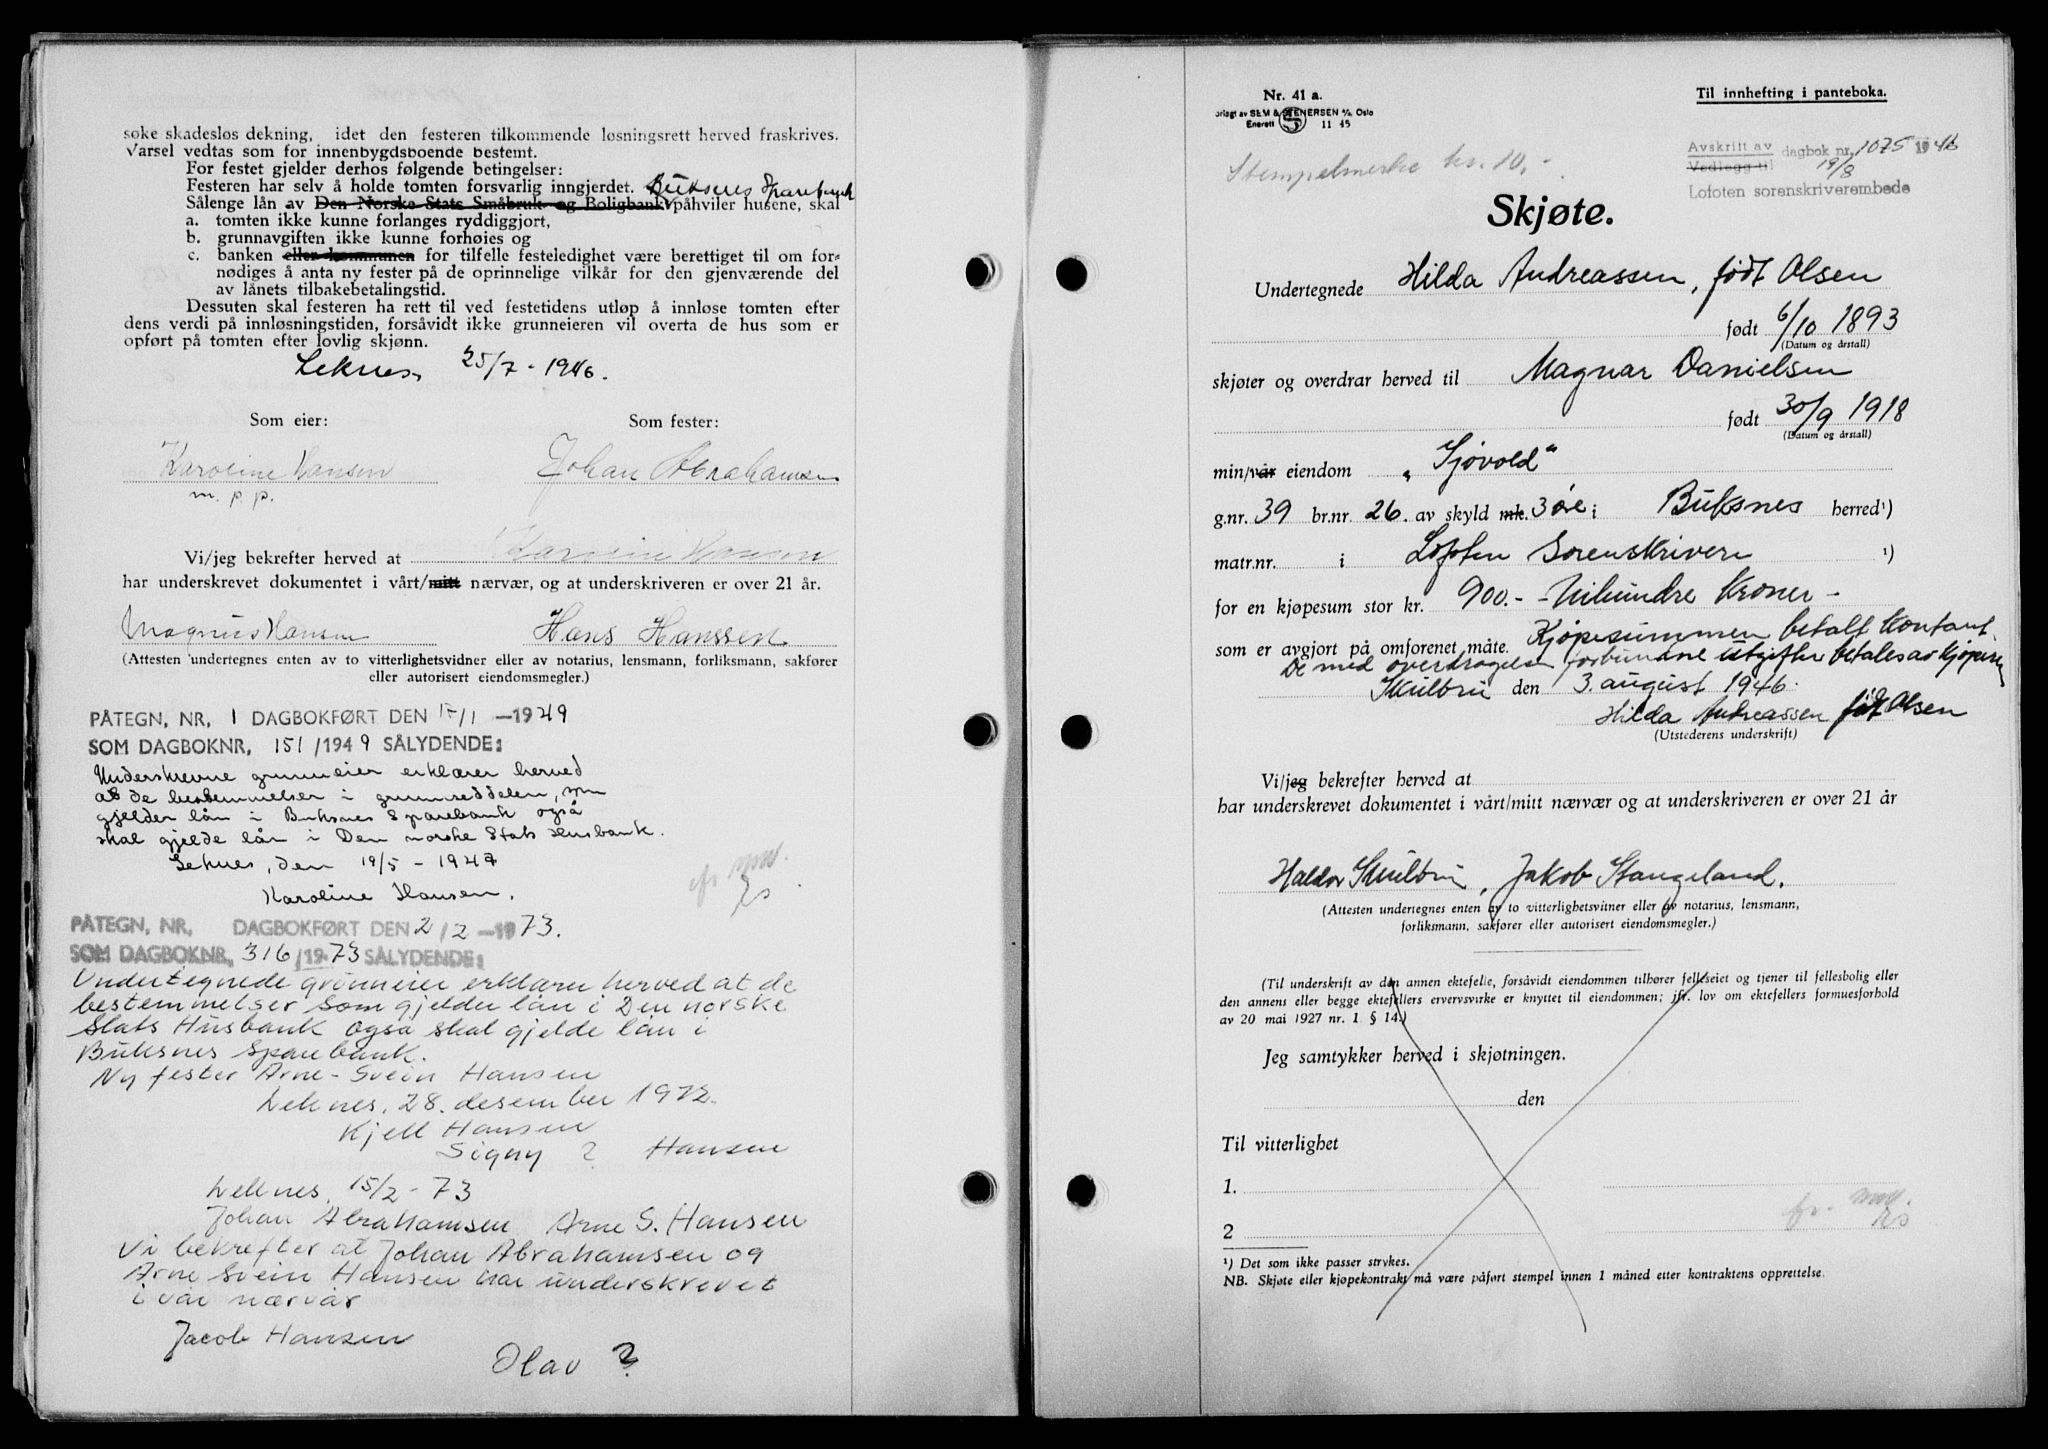 søke skadesløs dekning, idet den festeren tilkommende løsningsrett herved fraskrives.
Varsel vedtas som for innenbygdsboende bestemt.
For festet gjelder derhos følgende betingelser:
Festeren har selv å holde tomten forsvarlig inngjerdet. Buksnes Sparebank
Sålenge lån av Den Norske Stats Småbruk- og Boligbank påhviler husene, skal
a. tomten ikke kunne forlanges ryddiggjort,
b. grunnavgiften ikke kunne forhøies og
c. banken eller kommunen for tilfelle festeledighet være berettiget til om for-
nødiges å anta ny fester på de oprinnelige vilkår for den gjenværende del
av lånets tilbakebetalingstid.
Dessuten skal festeren ha rett til ved festetidens utløp å innløse tomten efter
dens verdi på innløsningstiden, forsåvidt ikke grunneieren vil overta de hus som er
opført på tomten efter lovlig skjønn.
Leknes, 25/7 - 1946.
Som eier: Som fester:
Karoline Hansen Johan Abrahamsen
m. p. p.
Vi/jeg bekrefter herved at Karoline Hansen
har underskrevet dokumentet i vårt/mitt nærvær, og at underskriveren er over 21 år.
Magnus Hansen Hans Hanssen
(Attesten undertegnes enten av to vitterlighetsvidner eller av notarius, lensmann, forliksmann, sakfører
eller autorisert eiendomsmegler.)
PÅTEGN. NR. 1 DAGBOKFØRT DEN 17/1 - 1949
SOM DAGBOKNR. 151/1949 SÅLYDENDE:
Underskrevne grunneier erklærer herved
at de bestemmelser i grunnseddelen, som
gjelder lån i Buksnes Sparebank også
skal gjelde lån i Den norske Stats Husbank.
Leknes, den 19/5 - 1947
Karoline Hansen.
PÅTEGN. NR. DAGBOKFØRT DEN 2/2 - 1973.
SOM DAGBOKNR. 316/1973 SÅLYDENDE:
Undertegnede grunneier erklærer herved at de
bestemmelser som gjelder lån i Den norske
Stats Husbank også skal gjelde lån i
Buksnes Sparebank.
Ny fester Arne-Svein Hansen
Leknes, 28. desember 1972.
Kjell Hansen
Signy ? Hansen
Leknes, 15/2 - 73
Johan Abrahamsen Arne S. Hansen
Vi bekrefter at Johan Abrahamsen og
Arne Svein Hansen har underskrevet
i vår nærvær
Jacob Hansen
Olav ?
Nr. 41 a.
Til innhefting i panteboka.
SEM & STENERSEN A/S, Oslo
Enerett S 11 45
Avskrift av dagbok nr. 1075 1946
Vedlegg til 19/8
Lofoten sorenskriverembede
Stempelmerke kr. 10,-
Skjøte.
Undertegnede Hilda Andreassen, født Olsen
født 6/10 1893
(Datum og årstall)
skjøter og overdrar herved til Magnar Danielsen
født 30/9 1918
(Datum og årstall)
min/vår eiendom „Sjøvold“
g.nr. 39 br.nr. 26. av skyld mk. 3 øre i Buksnes herred¹)
matr.nr. i Lofoten Sorenskriveri ¹)
for en kjøpesum stor kr. 900.- - Nihundre kroner -
som er avgjort på omforenet måte. Kjøpesummen betalt kontant.
De med overdragelsen forbundne utgifter betales av kjøperen
Skulbru den 3. august 1946.
Hilda Andreassen født Olsen
(Utstederens underskrift)
Vi/jeg bekrefter herved at
har underskrevet dokumentet i vårt/mitt nærvær og at underskriveren er over 21 år
Haldor Skulbru, Jakob Stangeland.
(Attesten undertegnes enten av to vitterlighetsvitner eller av notarius, lensmann,
forliksmann, sakfører eller autorisert eiendomsmegler.)
(Til underskrift av den annen ektefelle, forsåvidt eiendommen tilhører felleseiet og tjener til fellesbolig eller
den annens eller begge ektefellers ervervsvirke er knyttet til eiendommen; jfr. lov om ektefellers formuesforhold
av 20 mai 1927 nr. 1 § 14.)
Jeg samtykker herved i skjøtningen.
den
Til vitterlighet
1.
2
¹) Det som ikke passer strykes.
NB. Skjøte eller kjøpekontrakt må være påført stempel innen 1 måned etter kontraktens opprettelse.